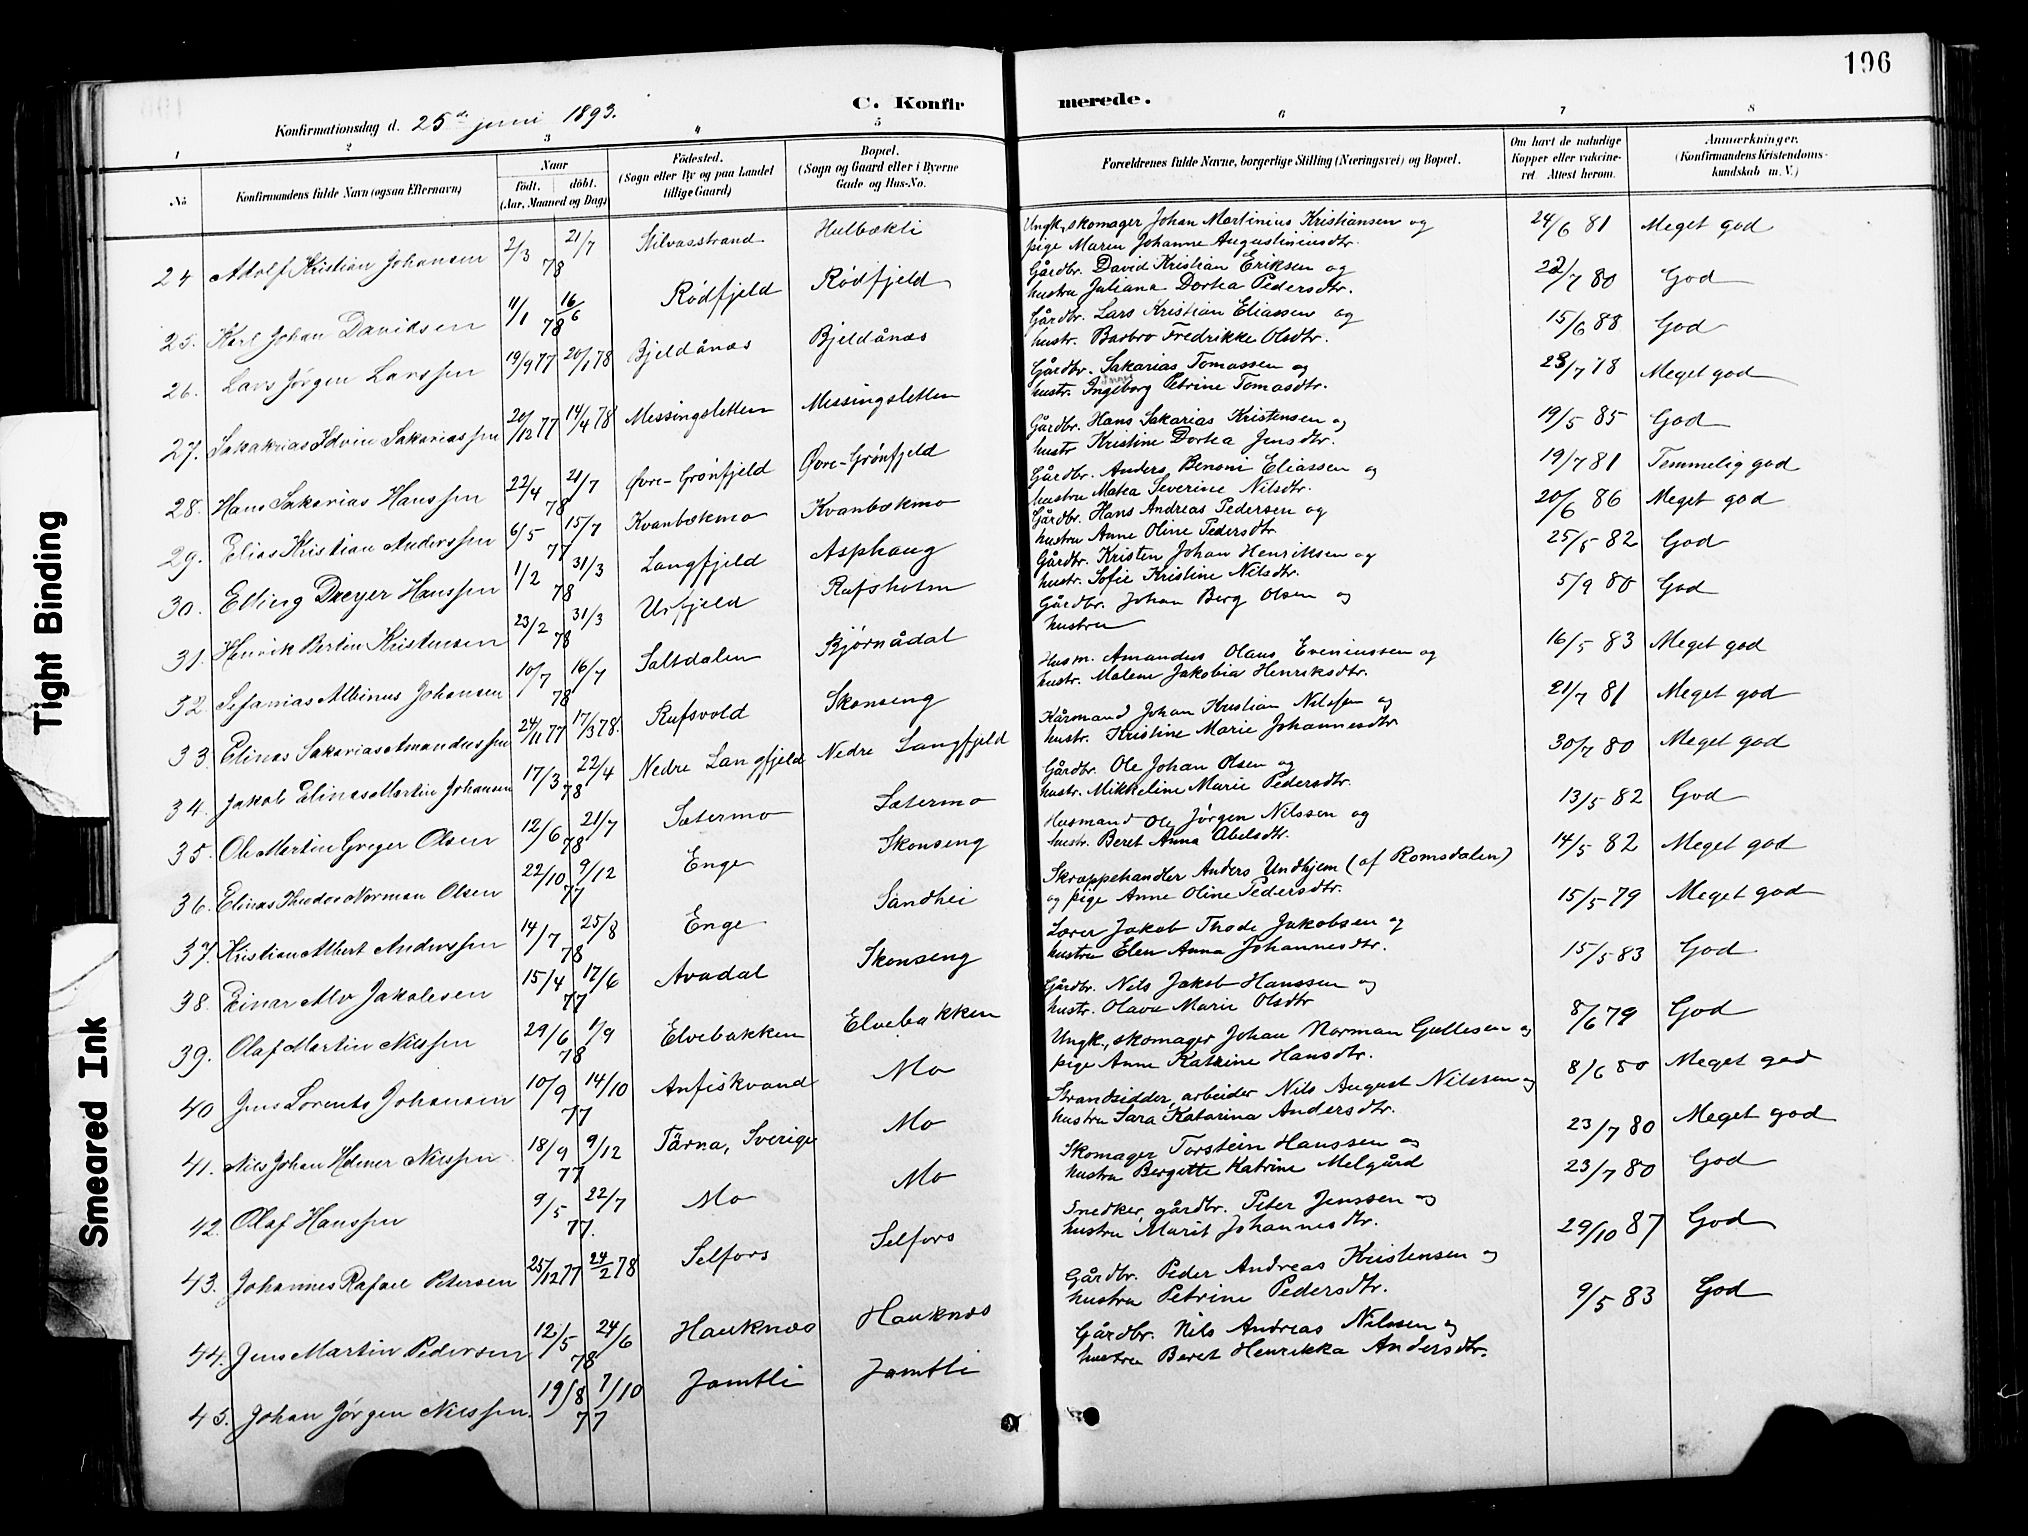 196
C. Konfirmerede.
Konfirmationsdag d. 25de juni 1893.
1 2 3 4 5 6 7 8
No
Konfirmandens fulde Navn (ogsaa Efternavn)
Naar
født. døbt.
(Aar, Maaned og Dag)
Fødested.
(Sogn eller By og paa Landet
tillige Gaard)
Bopæl.
(Sogn og Gaard eller i Byerne
Gade og Hus-No.
Forældrenes fulde Navne, borgerlige Stilling (Næringsvei) og Bopæl.
Om havt de naturlige
Kopper eller vakcine-
ret. Attest herom.
Anmærkninger.
(Konfirmandens Kristendoms-
kundskab m. V.)
24 Adolf Kristian Johansen 2/3 21/7 78 Stilvasstrand Hulbækli Ungk., skomager Johan Martinius Kristiansen og
pige Maren Johanne Augustiniusdtr. 24/6 81 Meget god
25. Karl Johan Davidsen 11/1 16/6 78 Rødfjeld Rødfjeld Gårdbr. David Kristian Eriksen og
hustru Juliana Dortea Pedersdtr. 22/7 80 God
26. Lars Jørgen Larssen 19/9 77 20/1 78 Bjeldånæs Bjeldånæs Gårdbr. Lars Kristian Eliassen og
hustr. Barbro Fredrikke Olsdtr. 15/6 88 God
27. Sakakrias Edvin Sakariassen 20/12 77 14/4 78 Messingsletten Messingsletten Gårdbr. Sakarias Tomassen og
hustr. Ingeborg Petrine Tomasdtr. 23/7 78 Meget god
28. Hans Sakarias Hanssen 22/4 21/7 78 Øvre-Grønfjeld Øvre-Grønfjeld Gårdbr. Hans Sakarias Kristensen og
hustr Kristine Dortea Jensdtr. 19/5 85 God
29. Elias Kristian Anderssen 6/5 15/7 77 Kvanbækmo Kvanbækmo Gårdbr. Anders Benoni Eliassen og
hustru Matea Severine Nilsdtr. 19/7 81 Temmelig god
30. Elling Dreyer Hanssen 1/2 31/3 78 Langfjeld Asphaug Gårdbr. Hans Andreas Pedersen og
hustru Anne Oline Pedersdtr 20/6 86 Meget god
31. Henrik Bertin Kristensen 23/2 31/3 78 Urfjeld Rufsholm Gårdbr. Kristen Johan Henriksen og
hustr. Sofie Kristine Nilsdtr. 25/5 82 God
32. Sefanias Albinus Johansen 10/7 16/7 78 Saltdalen Bjørnådal Gårdbr. Johan Berg Olsen og
hustru 5/9 80 God
33. Elinas Sakarias Amandussen 24/11 77 17/3 78. Rufsvold Skonseng Husm. Amandus Olaus Eveniussen og
hustr. Malene Jakobia Henriksdtr. 16/5 83 Meget god
34. Jakob Elinas Martin Johansen 17/3 22/4 78 Nedre Langfjeld Nedre Langfjeld Kårmand Johan Kristian Nilssen og
hustr. Kristine Marie Johannesdtr 21/7 81 Meget god
35. Ole Martin Greger Olsen 12/6 21/7 78 Sætermo Sætermo Gårdbr. Ole Johan Olsen og
hustr. Mikkeline Marie Pedersdtr. 30/7 80 Meget god
36. Elinas Theodor Norman Olsen 22/10 9/12 77 Enge Skonseng Husmand Ole Jørgen Nilssen og
hustr. Beret Anna Abelsdtr. 13/5 82 God
37. Kristian Albert Anderssen 14/7 25/8 78 Enge Sandhei Skræppehandler Anders Undhjem (af Romsdalen)
og pige Anne Oline Pedersdtr. 14/5 82 Meget god
38. Einar Alv Jakobsen 15/4 17/6 77 Avadal Skonseng Lærer Jakob Thode Jakobsen og
hustru Elen Anna Johannesdtr. 15/5 79 Meget god
39. Olaf Martin Nilssen 29/6 1/9 78 Elvebakken Elvebakken Gårdbr. Nils Jakob Hanssen og
hustr. Olava Marie Olsdtr 15/5 83 God
40 Jens Lorents Johansen 10/9 14/10 77 Anfiskvand Mo Ungk., skomager Johan Norman Gullesen og
pige Anne Katrine Hansdtr. 8/6 79 God
41. Nils Johan Helmer Nilssen 18/9 9/12 77 Tärna, Sverige Mo Strandsidder, arbeider Nils August Nilssen og
hustru Sara Katarina Andersdtr. 8/6 80 Meget god
42. Olaf Hanssen 9/5 22/7 77. Mo Mo Skomager Torstein Hanssen og
hustru Bergitte Katrine Melgård 23/7 80 Meget god
43. Johannes Rafael Petersen 25/12 77 24/2 78 Selfors Selfors Snedker, gårdbr. Peter Jenssen og
hustru Marit Johannesdtr. 23/7 80 God
44. Jens Martin Pedersen 12/5 24/6 78 Hauknæs Hauknæs Gårdbr. Peder Andreas Kristensen og
hustru Petrine Pedersdtr. 29/10 87 God
45. Johan Jørgen Nilssen. 19/8 7/10 77 Jamtli Jamtli Gårdbr. Nils Andreas Nilssen og
hustru Beret Henrikka Andersdtr. 9/5 83 God
Tight Binding
Smeared Ink